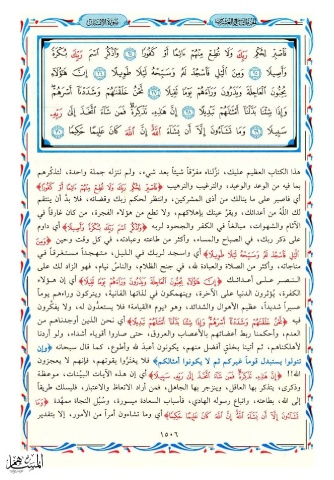 سورة الإنسان
فَاصْبِرْ لِحُكْمِ رَبِّكَ وَلَا تُطِعْ مِنْهُمْ آثِمًا أَوْ كَفُورًا ﴿٢٤﴾ وَاذْكُرِ اسْمَ رَبِّكَ بُكْرَةً
وَأَصِيلًا ﴿٢٥﴾ وَمِنَ اللَّيْلِ فَاسْجُدْ لَهُ وَسَبِّحْهُ لَيْلًا طَوِيلًا ﴿٢٦﴾ إِنَّ هَؤُلَاءِ
يُحِبُّونَ الْعَاجِلَةَ وَيَذَرُونَ وَرَاءَهُمْ يَوْمًا ثَقِيلًا ﴿٢٧﴾ نَحْنُ خَلَقْنَاهُمْ وَشَدَدْنَا أَسْرَهُمْ
وَإِذَا شِئْنَا بَدَّلْنَا أَمْثَالَهُمْ تَبْدِيلًا ﴿٢٨﴾ إِنَّ هَذِهِ تَذْكِرَةٌ فَمَنْ شَاءَ اتَّخَذَ إِلَى رَبِّهِ
سَبِيلًا ﴿٢٩﴾ وَمَا تَشَاءُونَ إِلَّا أَنْ يَشَاءَ اللَّهُ إِنَّ اللَّهَ كَانَ عَلِيمًا حَكِيمًا ﴿٣٠﴾
هذا الكتاب العظيم عليك، نزَّلناه مفرَّقاً شيئاً بعد شيء، ولم ننزله جملة واحدة، لتذكِّرهم
بما فيه من الوعد والوعيد، والترغيب والترهيب ﴿فَاصْبِرْ لِحُكْمِ رَبِّكَ وَلَا تُطِعْ مِنْهُمْ آثِمًا أَوْ كَفُورًا﴾
أي فاصبر على ما ينالك من أذى المشركين، وانتظر لحكم ربك وقضائه، فلا بدَّ أن ينتقم
لك اللَّهُ من أعدائك، ويقرّ عينك بإهلاكهم، ولا تطع من هؤلاء الفجرة، من كان غارقاً في
الآثام والشهوات، مبالغاً في الكفر والجحود لربه ﴿وَاذْكُرِ اسْمَ رَبِّكَ بُكْرَةً وَأَصِيلًا﴾ أي داوم
على ذكر ربك، في الصباح والمساء، وأكثر من طاعته وعبادته، في كل وقت وحين ﴿وَمِنَ
اللَّيْلِ فَاسْجُدْ لَهُ وَسَبِّحْهُ لَيْلًا طَوِيلًا﴾ أي واسجد لربك في الليل، متهجداً مستغرقاً في
مناجاته، وأكثر من الصلاة والعبادة لله، في جنح الظلام، والناسُ نيام، فهو الزاد لك على
النصر على أعدائك ﴿إِنَّ هَؤُلَاءِ يُحِبُّونَ الْعَاجِلَةَ وَيَذَرُونَ وَرَاءَهُمْ يَوْمًا ثَقِيلًا﴾ أي إن هؤلاء
الكفرة، يُؤثرون الدنيا على الآخرة، وينهمكون في لذاتها الفانية، ويتركون وراءهم يوماً
عسيراً شديداً، عظيم الأهوال والشدائد، وهو يوم «القيامة» فلا يستعدُّون له، ولا يفكِّرون
فيه ﴿نَحْنُ خَلَقْنَاهُمْ وَشَدَدْنَا أَسْرَهُمْ وَإِذَا شِئْنَا بَدَّلْنَا أَمْثَالَهُمْ تَبْدِيلًا﴾ أي نحن الذين أوجدناهم من
العدم، وأحكمنا ربط أعضائهم بالأعصاب والعروق، حتى صاروا أقوياء أشداء، ولو أردنا
لأهلكناهم، ثم أتينا بخلقٍ أفضل منهم، يكونون أعبد للهِ وأطوع، كما قال سبحانه ﴿وَإِن
تَتَوَلَّوْا يَسْتَبْدِلْ قَوْمًا غَيْرَكُمْ ثُمَّ لَا يَكُونُوا أَمْثَالَكُم﴾ فلا يغترُّوا بقوتهم، فإنهم لا يعجزون
الله!! ﴿إِنَّ هَذِهِ تَذْكِرَةٌ فَمَنْ شَاءَ اتَّخَذَ إِلَى رَبِّهِ سَبِيلًا﴾ أي إن هذه الآيات البيِّنات، موعظة
وذكرى، يتذكر بها العاقل، وينزجر بها الجاهل، فمن أراد الاتعاظ والاعتبار، فليسلك طريقاً
إلى الله، بطاعته، واتباع رسوله الهادي، فأسباب السعادة ميسورة، وسُبل النجاة ممهَّدة ﴿وَمَا
تَشَاءُونَ إِلَّا أَنْ يَشَاءَ اللَّهُ إِنَّ اللَّهَ كَانَ عَلِيمًا حَكِيمًا﴾ أي وما تشاءون أمراً من الأمور، إلا بتقدير
١٥٠٦